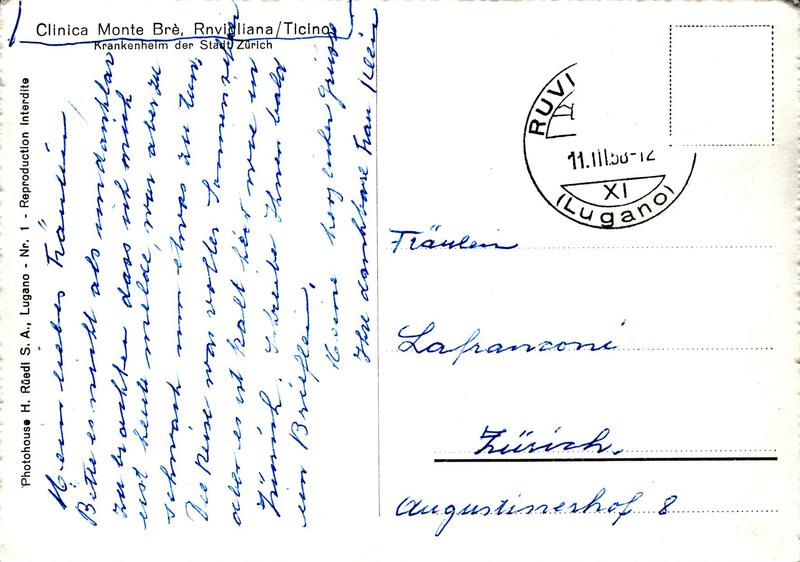 Clinica Monte Brè, Rnvigliana/Ticino
Krankenheim der Stadt Zürich
Photohouse H. Rüedi S. A., Lugano - Nr. 1 - Reproduction interdite
Mein liebes Fräulein,
Bitte es nicht als undankbar
zu betrachten dass ich mich
erst heute melde, war aber zu
schwach um etwas zu tun,
Die Reise was voller Sonnenschein
aber es ist kalt hier wie in
Zürich. Schreibe Ihnen bald
ein Brieflein,
Meine herzlichen Grüsse
Ihre dankbare Frau Klein
RUVI
11.III.58-12
XI
(Lugano)
Fräulein
Lafranconi
Zürich.
Augustinerhof 8